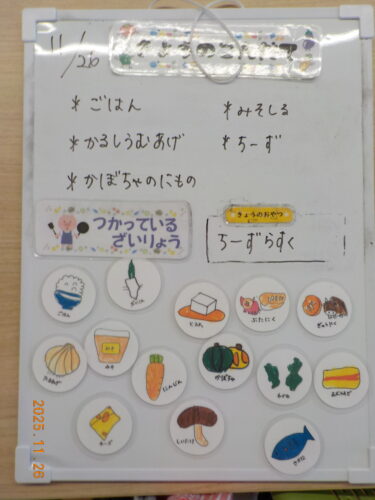 11/26
きょうのこんだて
*ごはん
*みそしる
*かるしうむあげ
*ちーず
*かぼちゃのにもの
つかっている
ざいりょう
きょうのおやつ
ちーずらすく
ごはん
だいこん
とうふ
ぶたにく
ぎゅうにく
たまねぎ
みそ
にんじん
かぼちゃ
わかめ
チーズ
しいたけ
さかな
2025.11.26